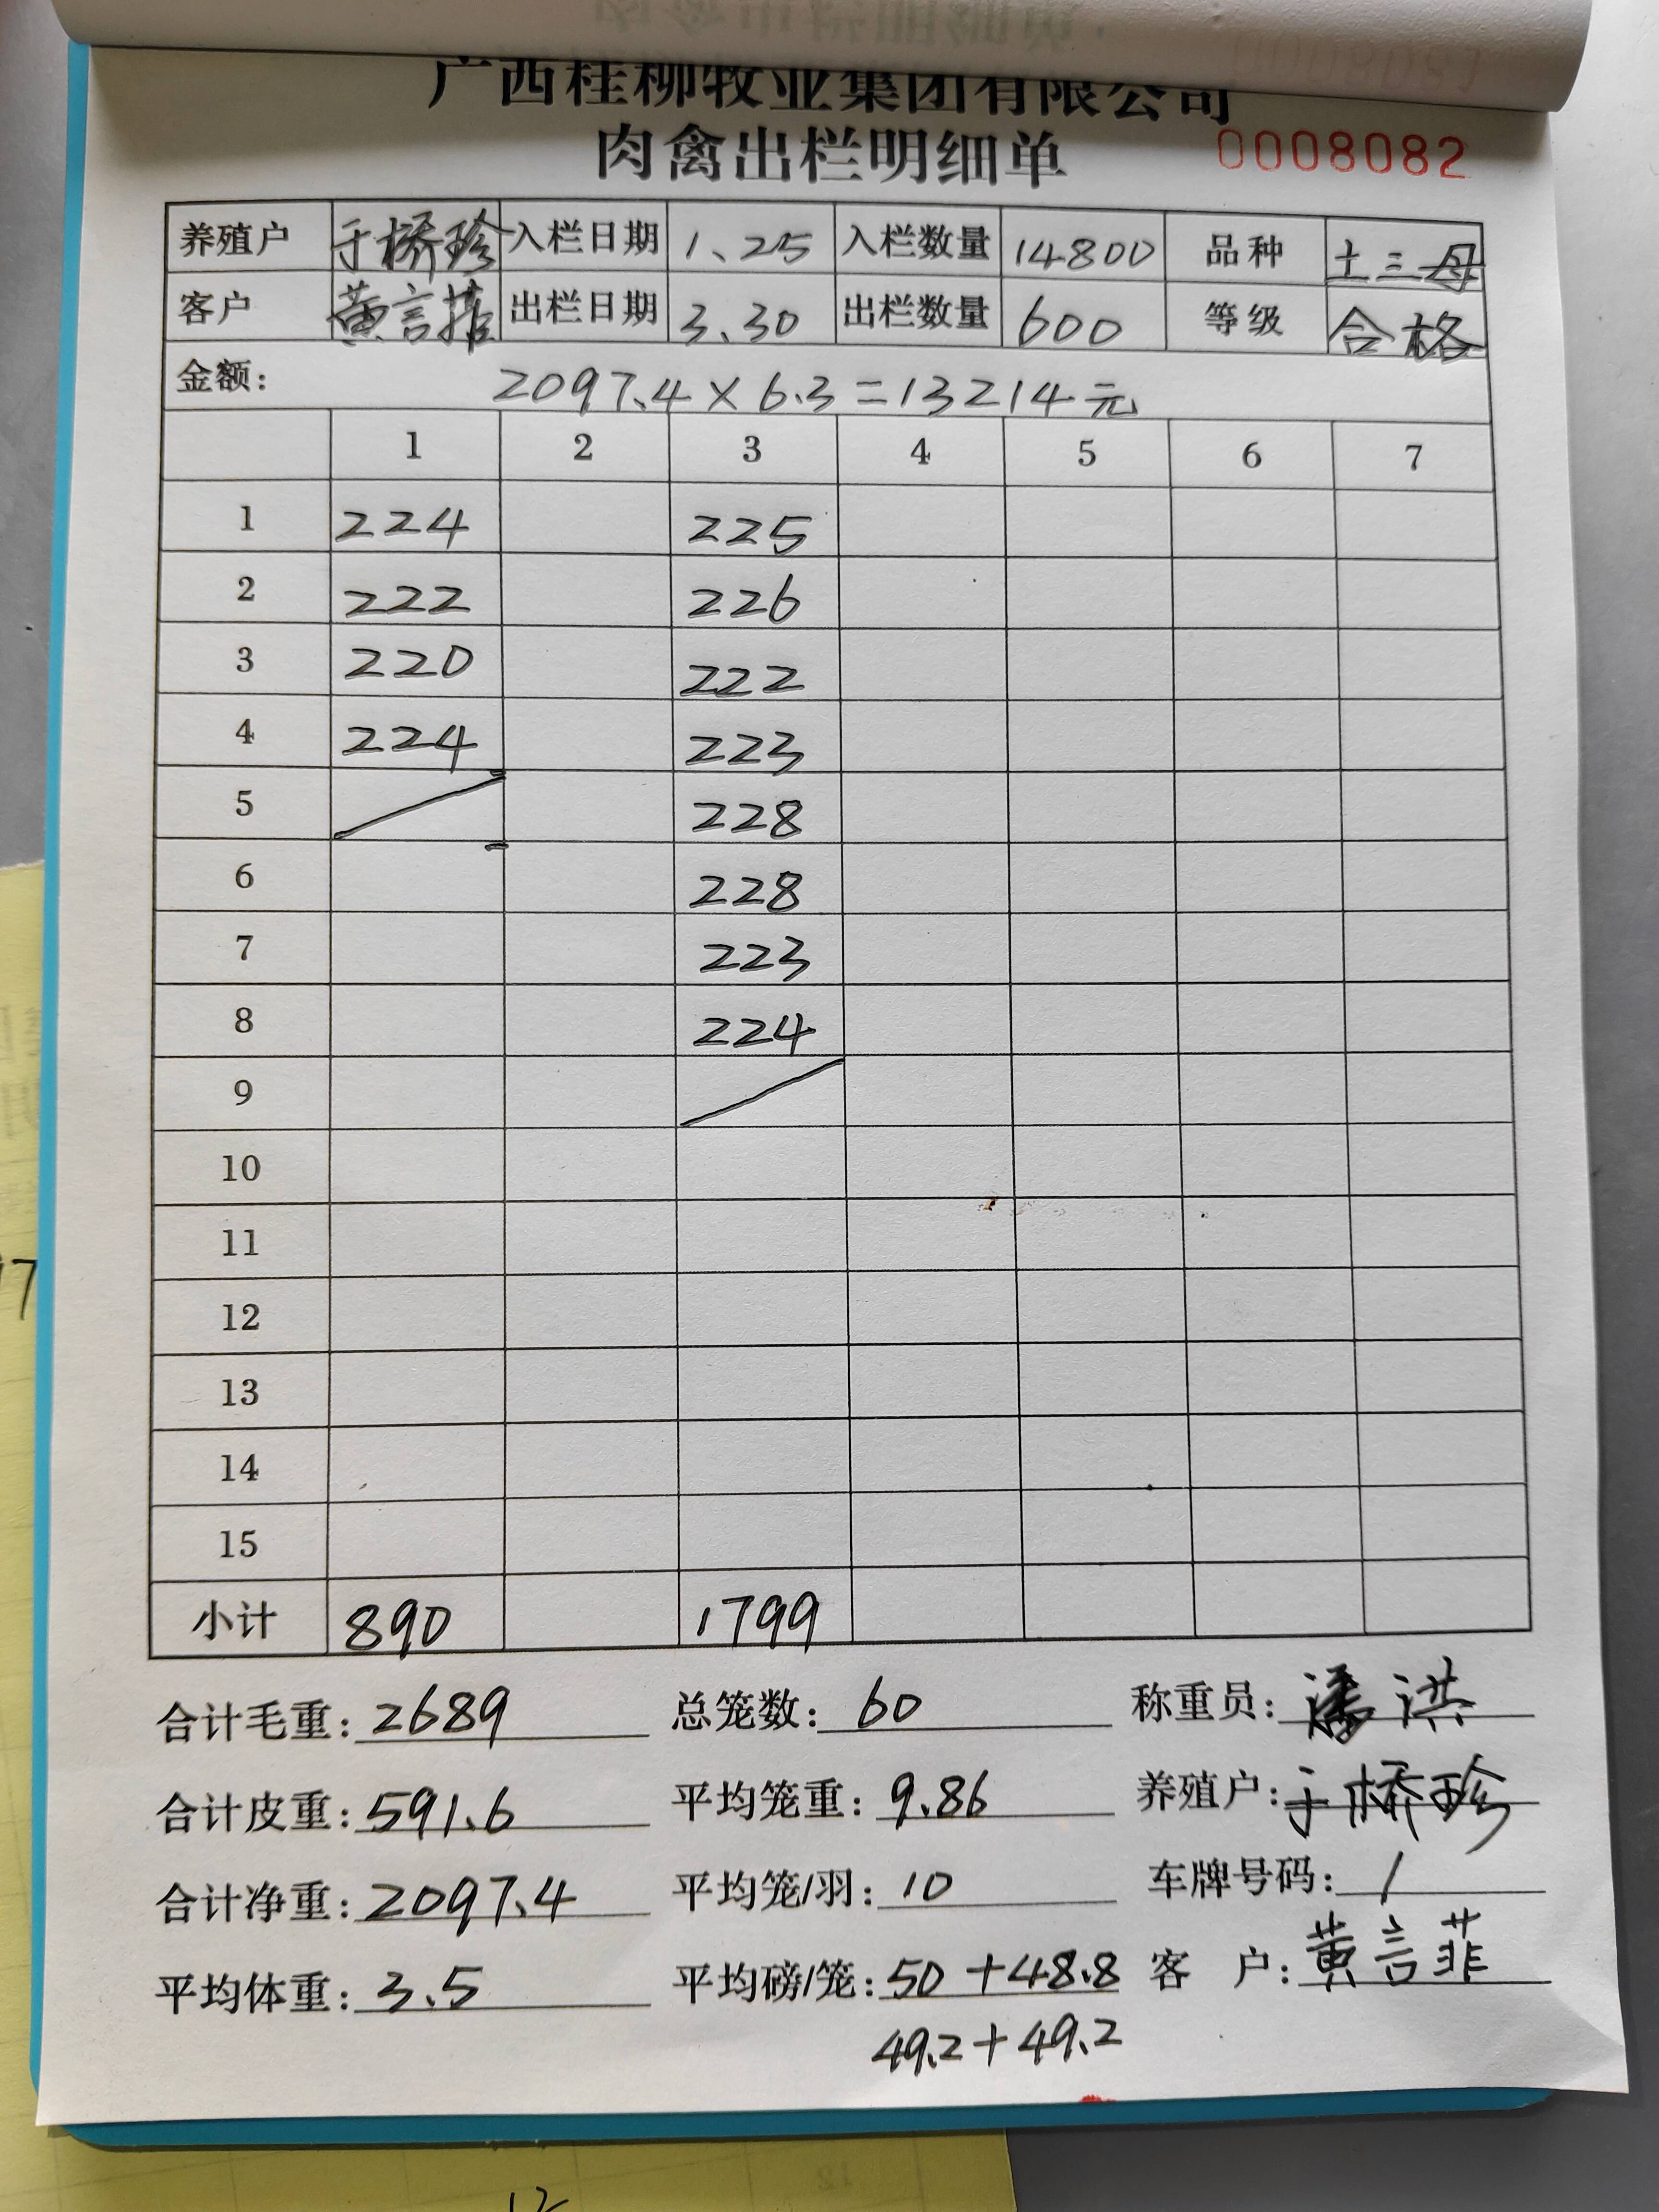 广西桂柳牧业集团有限公司
肉禽出栏明细单 0008082
养殖户 于桥珍 入栏日期 1.25 入栏数量 14800 品种 土三母
客户 黄言菲 出栏日期 3.30 出栏数量 600 等级 合格
金额: 2097.4×6.3=13214元
1 2 3 4 5 6 7
1 224 225
2 222 226
3 220 222
4 224 223
5 228
6 228
7 223
8 224
9
10
11
12
13
14
15
小计 890 1799
合计毛重: 2689 总笼数: 60 称重员: 潘洪
合计皮重: 591.6 平均笼重: 9.86 养殖户: 于桥珍
合计净重: 2097.4 平均笼/羽: 10 车牌号码: /
平均体重: 3.5 平均磅/笼: 50+48.8 客 户: 黄言菲
49.2+49.2